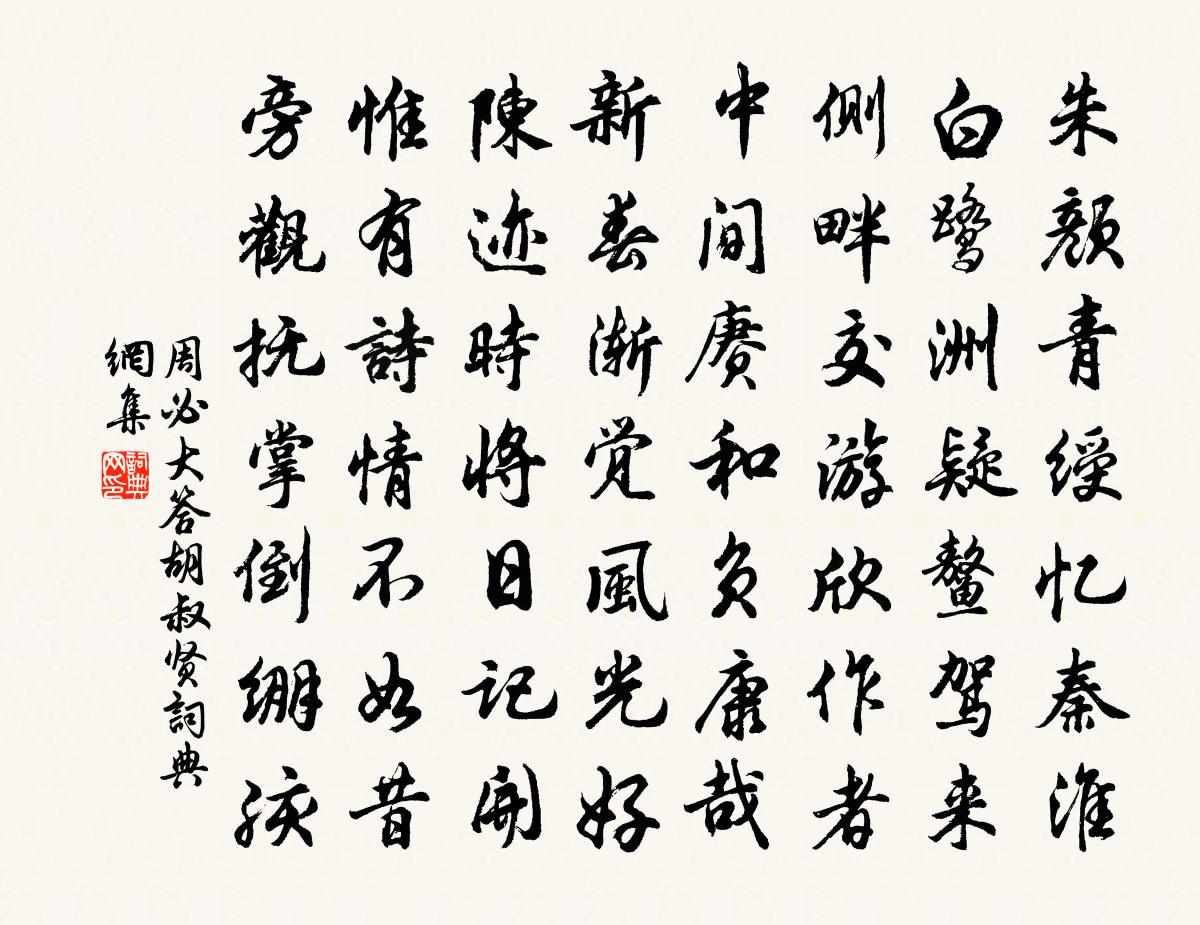 朱颜青绶忆秦淮
白鹭洲疑鳌驾来
側畔交游欣作者
中间赓和负康哉
新春渐觉風光好
陳迹時将日记開
惟有詩情不如昔
旁觀抚掌倒绷孩
周必大答胡叔贤詞典
網集
詞典网印